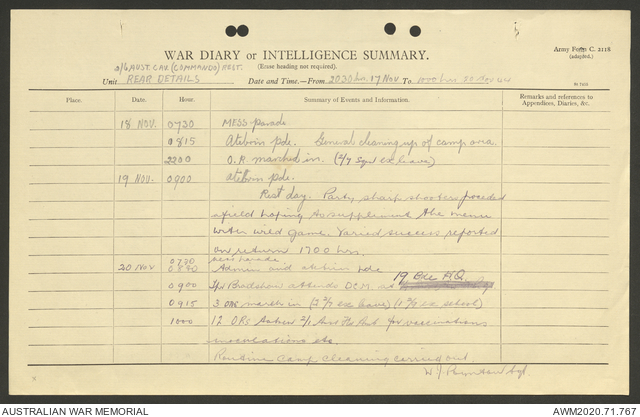 WAR DIARY or INTELLIGENCE SUMMARY.
Army Form C. 2118
(adapted.)
2/6 AUST. CAV. (COMMANDO) REGT.
(Erase heading not required).
Unit REAR DETAILS Date and Time.—From 2030 hrs. 17 NOV To
Place. Date. Hour. Summary of Events and Information. Remarks and references to
Appendices, Diaries, &c.
18 NOV. 0730 MESS parade
0815 pde. General cleaning up of camp area.
2200 O.R. marched in. (2/7 Sqn ex leave)
19 NOV. 0900 pde.
Rest day. Party sharp shooters proceeded
afield hoping to supplement the menu
with wild game. Varied success reported
on return 1700 hrs.
0730 mess parade
20 NOV 0830 Admin and pde
0900 Bradshaw attends DCM. at 19 Bde H.Q.
0915 3 ORs march in (2 ex leave) (1 ex school)
1000 12 ORs 2/1 for vaccinations
inoculations etc.
Routine camp cleaning carried out.
W J Sgt.
AUSTRALIAN WAR MEMORIAL
AWM2020.71.767